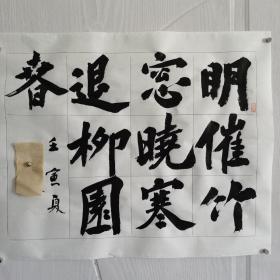 明催竹
窓曉寒
退柳園
春
壬寅夏